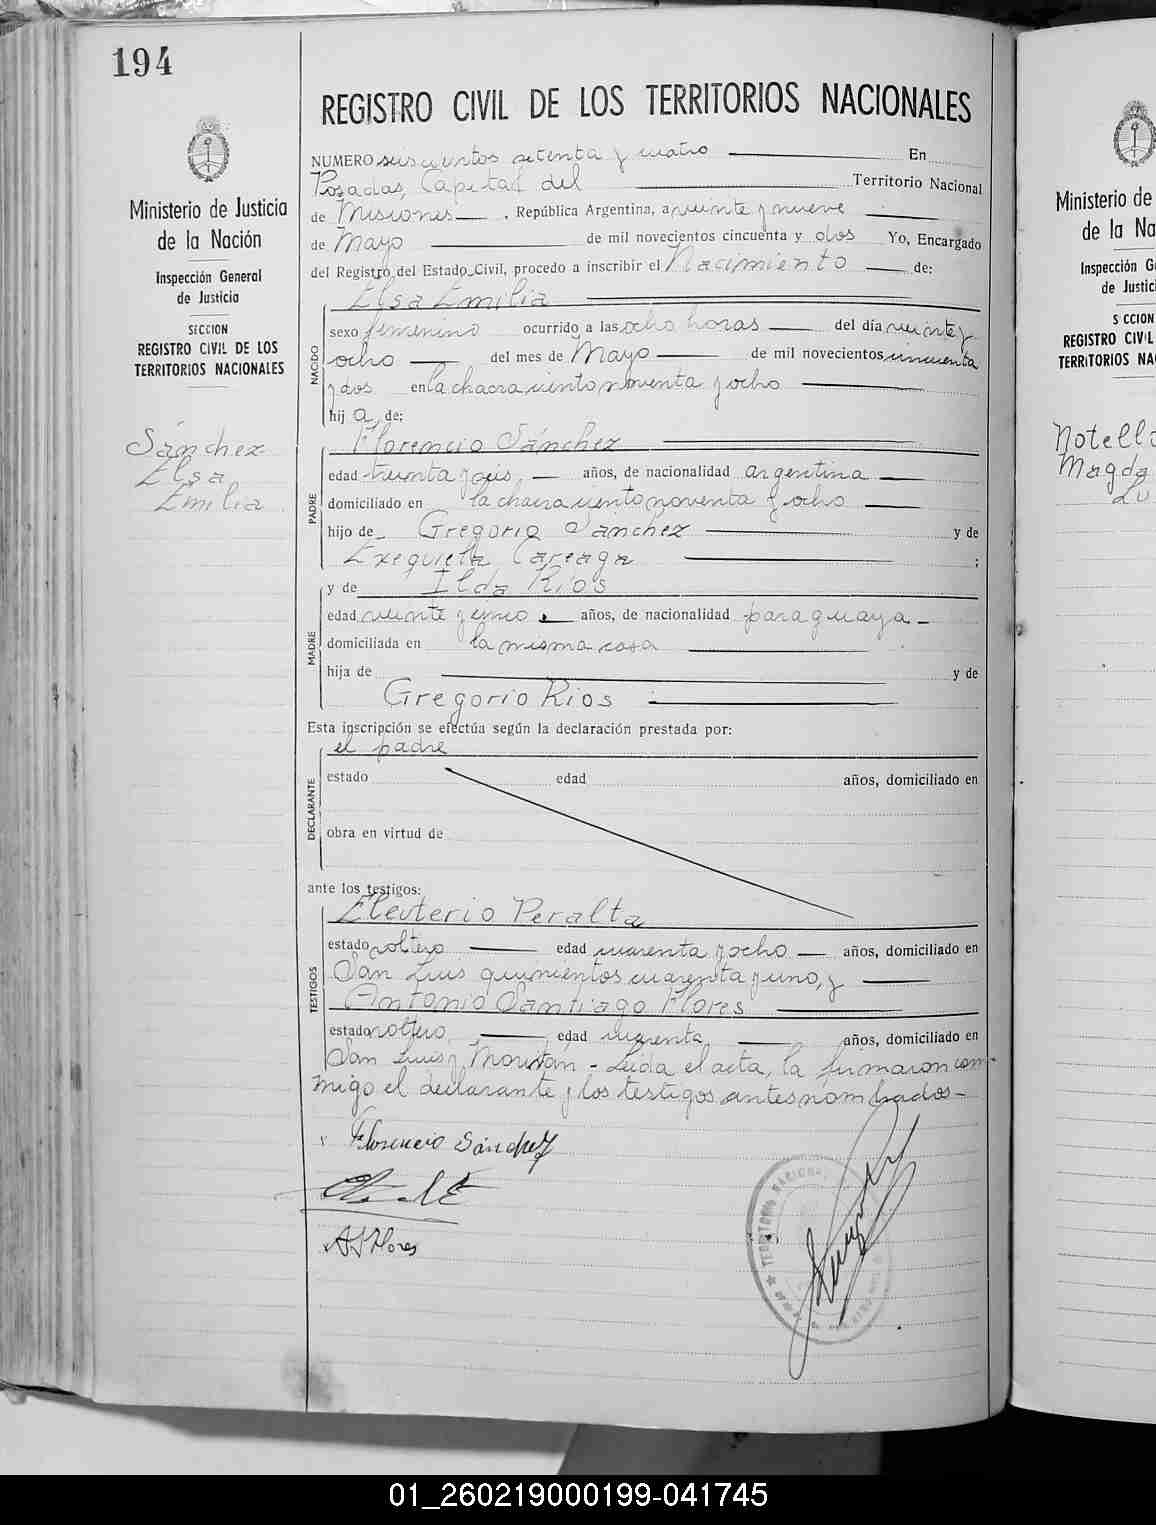 194
Ministerio de Justicia
de la Nación
Inspección General
de Justicia
SECCION
REGISTRO CIVIL DE LOS
TERRITORIOS NACIONALES
Sánchez
Elsa
Emilia
REGISTRO CIVIL DE LOS TERRITORIOS NACIONALES
NUMERO seiscientos setenta y cuatro En
Posadas, Capital del Territorio Nacional
de Misiones, República Argentina, a veinte y nueve
de Mayo de mil novecientos cincuenta y dos Yo, Encargado
del Registro del Estado Civil, procedo a inscribir el Nacimiento de:
NACIDO
Elsa Emilia
sexo femenino ocurrido a las ocho horas del día veinte y
ocho del mes de Mayo de mil novecientos cincuenta
y dos en la chacra ciento noventa y ocho
hij a de:
PADRE
Florencio Sánchez
edad treinta y seis años, de nacionalidad argentina
domiciliado en la chacra ciento noventa y ocho
hijo de Gregorio Sánchez y de
Exequiela Careaga ;
MADRE
y de Ilda Ríos
edad veinte y cinco años, de nacionalidad paraguaya
domiciliada en la misma casa
hija de y de
Gregorio Ríos
Esta inscripción se efectúa según la declaración prestada por:
DECLARANTE
el padre
estado edad años, domiciliado en
obra en virtud de
ante los testigos:
TESTIGOS
Eleuterio Peralta
estado soltero edad cuarenta y ocho años, domiciliado en
San Luis quinientos cuarenta y uno, y
Antonio Santiago Flores
estado soltero, edad cuarenta años, domiciliado en
San Luis y Moritán - Leida el acta, la firmaron con-
migo el declarante y los testigos antes nombrados -
Florencio Sánchez
A S Flores
TERRITORIO NACIONAL
Ministerio de
de la Na
Inspección G
de Justic
S CCION
REGISTRO CIVIL
TERRITORIOS NA
Notello
Magda
Lu
01_260219000199-041745